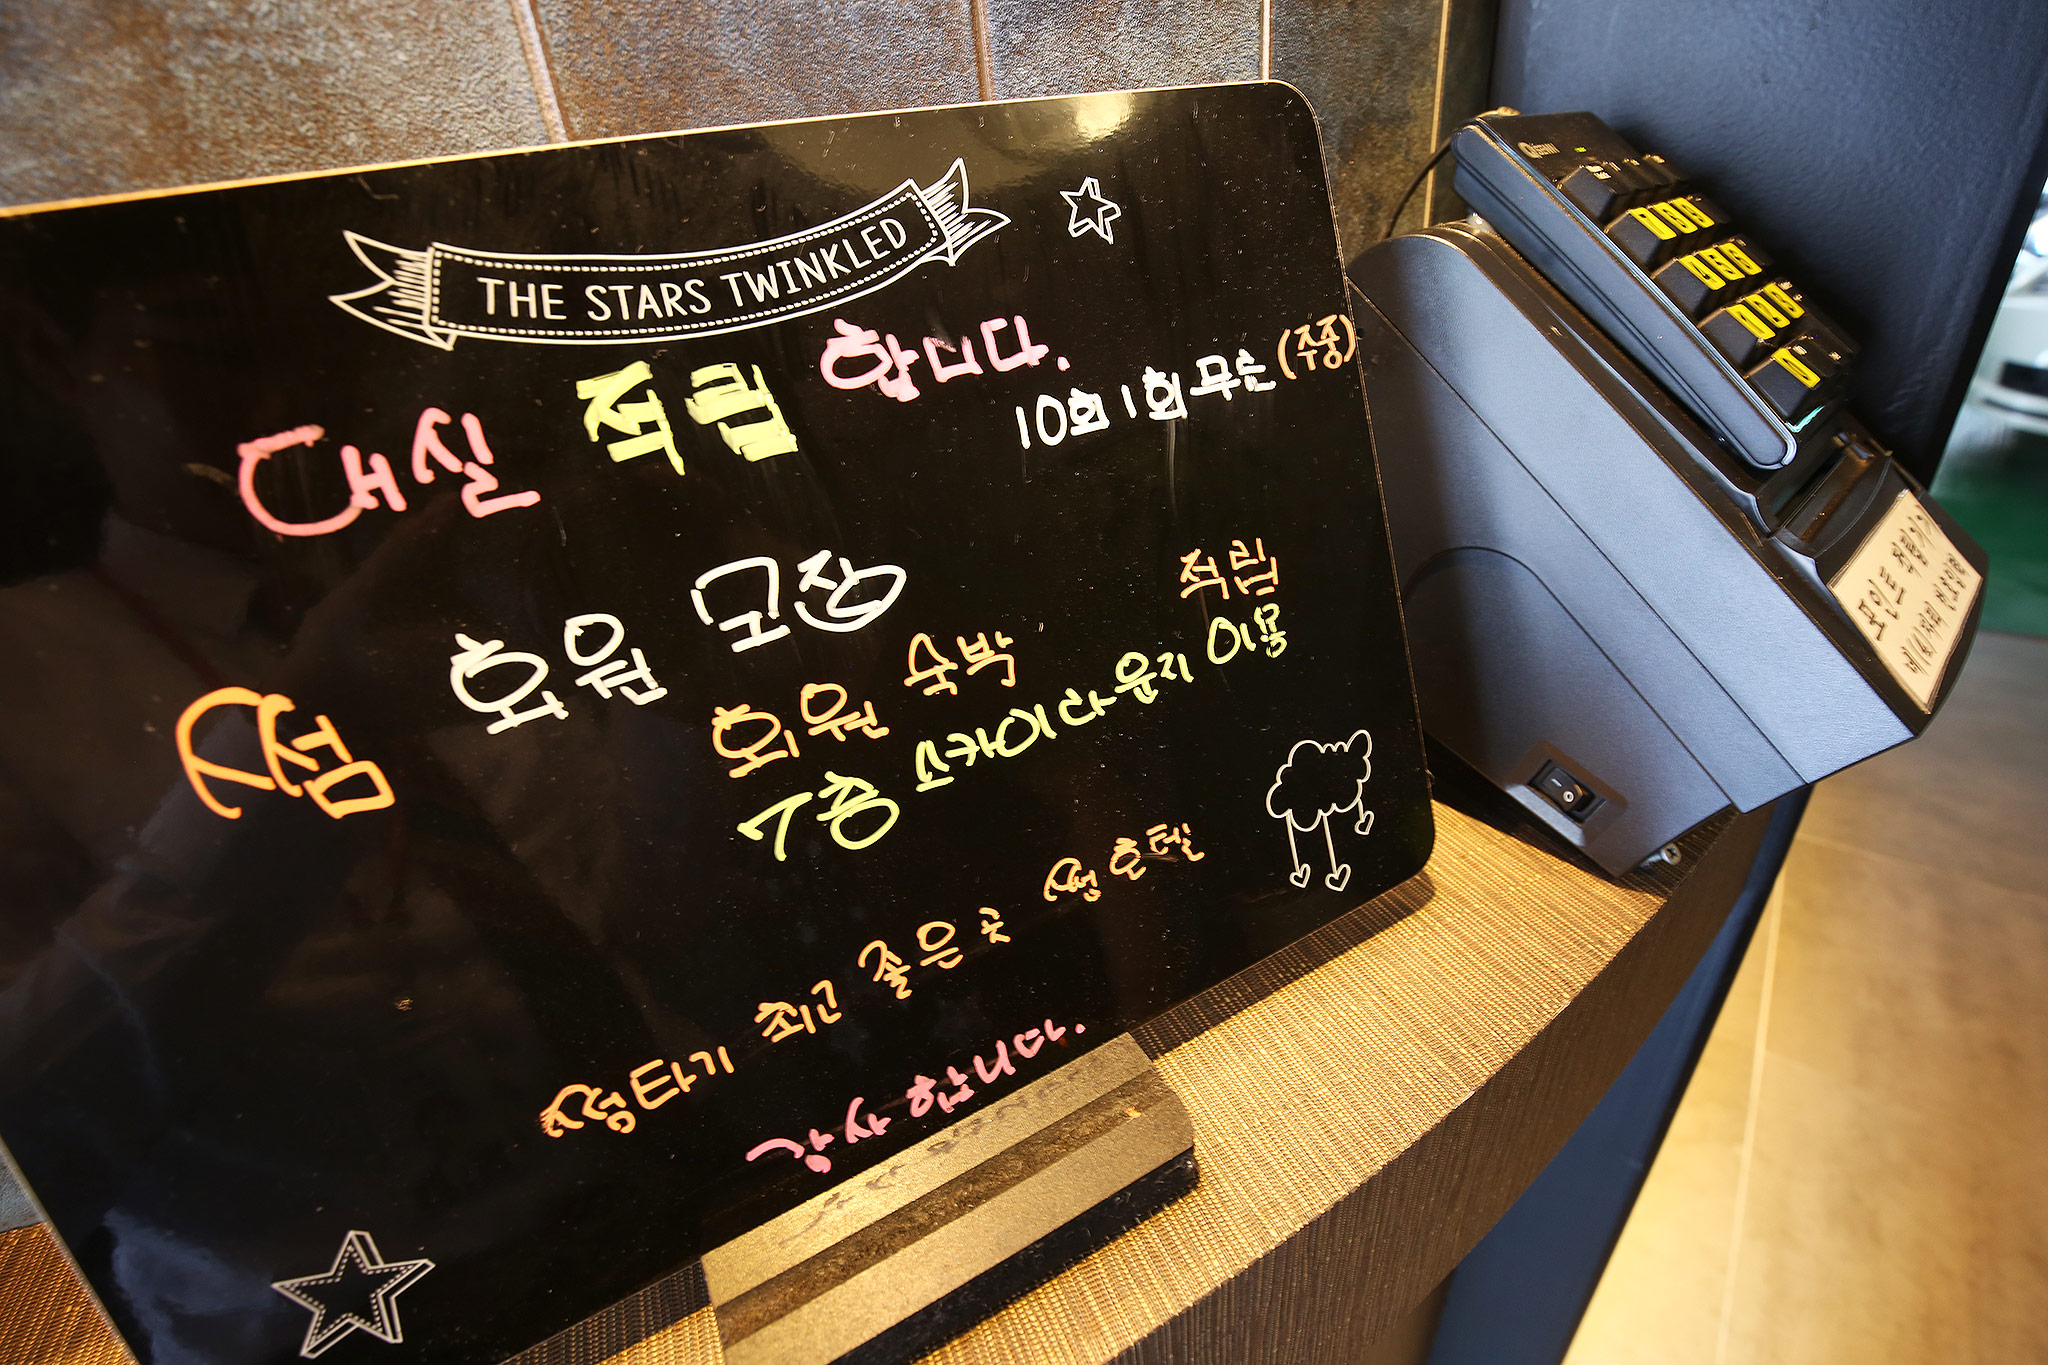 THE STARS TWINKLED
대실 적립 합니다.
10회 1회 무숙 (주중)
쩜 회원 모장
회원 숙박 적립
7층 스카이라운지 이용
쌩타기 최고 좋은 곳 쌩호텔
감사합니다.
포인트 적립기